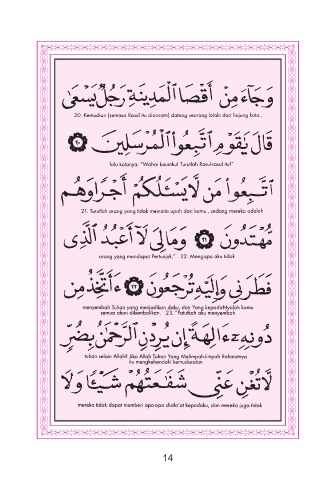 وَجَآءَ مِنْ أَقْصَا ٱلْمَدِينَةِ رَجُلٌ يَسْعَىٰ
20. Kemudian (semasa Rasul itu diancam) datang seorang lelaki dari hujung kota ,
قَالَ يَـٰقَوْمِ ٱتَّبِعُوا۟ ٱلْمُرْسَلِينَ ٢٠
lalu katanya: "Wahai kaumku! Turutlah Rasul-rasul itu!"
ٱتَّبِعُوا۟ مَن لَّا يَسْـَٔلُكُمْ أَجْرًا وَهُم
21. Turutlah orang yang tidak meminta upah dari kamu , sedang mereka adalah
مُّهْتَدُونَ ٢١ وَمَالِىَ لَآ أَعْبُدُ ٱلَّذِى
orang yang mendapat Pertunjuk." 22. Mengapa aku tidak
فَطَرَنِى وَإِلَيْهِ تُرْجَعُونَ ٢٢ ءَأَتَّخِذُ مِن
menyembah Tuhan yang menjadikan daku, dan Yang kepadaNyalah kamu
semua akan dikembalikan. 23. "Patutkah aku menyembah
دُونِهِۦٓ ءَالِهَةً إِن يُرِدْنِ ٱلرَّحْمَـٰنُ بِضُرٍّ
tuhan selain Allah? Jika Allah Tuhan Yang Melimpah-limpah Rahmatnya
itu mengkehendaki kemudaratan
لَّا تُغْنِ عَنِّى شَفَـٰعَتُهُمْ شَيْـًٔا وَلَا
mereka tidak dapat memberi apa-apa shafa'at kepadaku, dan mereka juga tidak
14